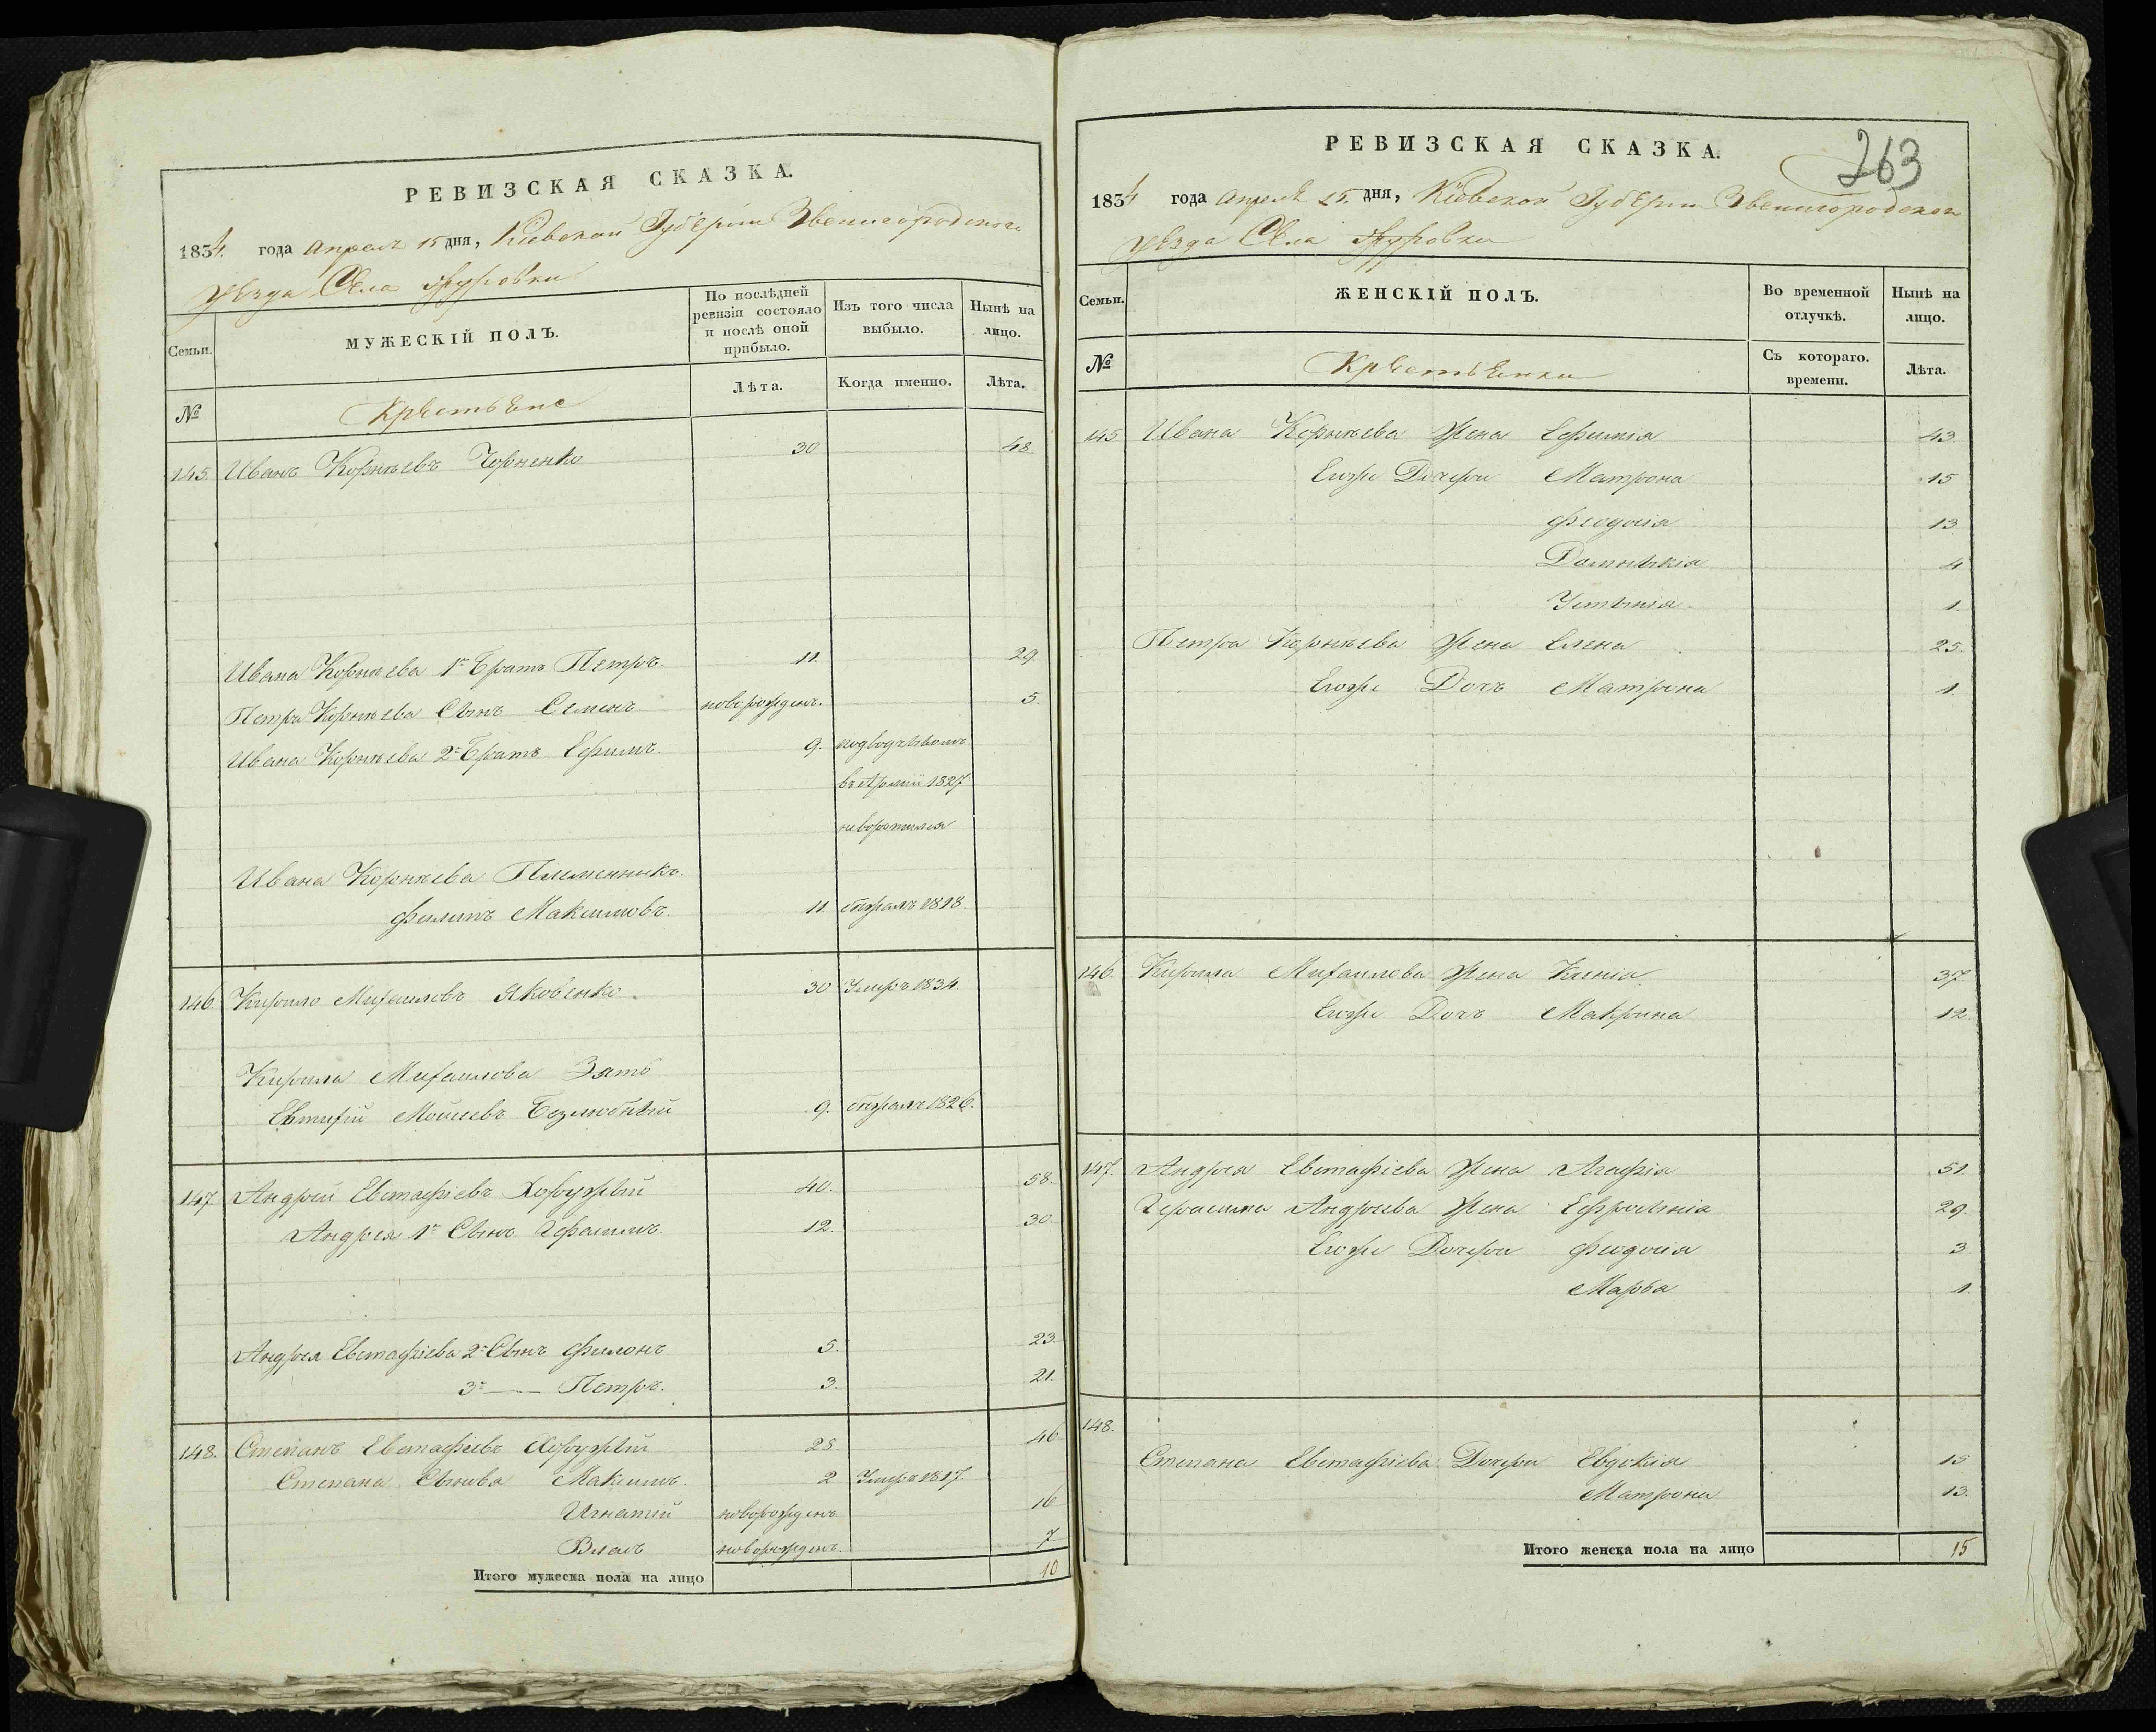 РЕВИЗСКАЯ СКАЗКА.
1834. года Апреля 15 дня, Кіевской Губерніи Звенигородскаго
уезда Села
Семьи.
МУЖЕСКІЙ ПОЛЪ.
По послѣдней ревизіи состояло и послѣ оной прибыло.
Изъ того числа выбыло.
Нынѣ на лицо.
№
Крестьяне
Лѣта.
Когда именно.
Лѣта.
145. Иванъ Корнѣевъ Чорненко 30 48.
Ивана Корнѣева 1й Братъ Петръ 11. 29
Петра Корнѣева Сынъ Семенъ новорожденъ. 5.
Ивана Корнѣева 2й Братъ Ефимъ. 9.
въ Арміи 1827
неворатился
Ивана Корнѣева Племенникъ
Филипъ Максимовъ 11. бежалъ 1818.
146. Кирило Михаиловъ Яковенко. 30 Умеръ 1834.
Кирила Михаилова Зять
Евтихій Моисеевъ 9. бежалъ 1826.
147. Андрей Евстафіевъ Хоружій 40. 58.
Андрея 1й Сынъ Герасимъ. 12. 30.
Андрея Евстафіева 2й Сынъ Филонъ 5. 23.
3й —— Петръ. 3. 21.
148. Степанъ Евстафіевъ Хоружій 28. 46
Степана Сынова Максимъ. 2 Умеръ 1817.
Игнатій новорожденъ 16
Власъ новорожденъ. 7
Итого мужеска пола на лицо 10
РЕВИЗСКАЯ СКАЗКА.
263
1834 года Апреля 15. дня, Кіевской Губерніи Звенигородскаго
уезда Села
Семьи.
ЖЕНСКІЙ ПОЛЪ.
Во временной отлучкѣ.
Нынѣ на лицо.
№
Крестьянки
Съ котораго. времени.
Лѣта.
145 Ивана Корнѣева Жена Ефимія 43.
Егоже Дочери Матрона 15
Феодосія 13
Домнѣкія 4
Устинія 1.
Петра Корнѣева Жена Елена 25.
Егоже Дочъ Матрона 1
146. Кирила Михаилова Жена Ксенія 37.
Егоже Дочъ Макрина 12.
147. Андрея Евстафіева Жена Агафія 51.
Герасима Андреева Жена Ефросинія 29.
Егоже Дочери Феодосія 3
Марфа 1.
148.
Степана Евстафіева Дочери Евдокія 15
Матрона 13.
Итого женска пола на лицо 15